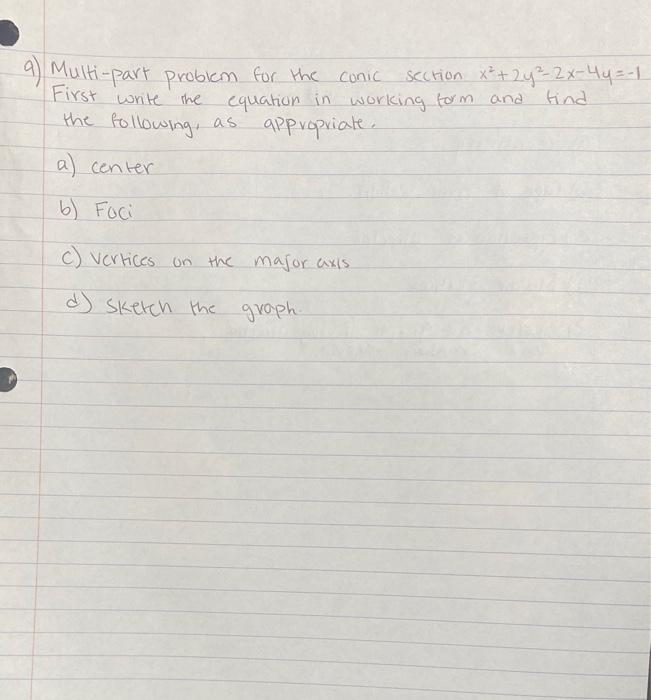 9) Multi-part problem for the conic section x²+2y²-2x-4y=-1
First write the equation in working form and find
the following, as appropriate.
a) center
b) Foci
c) vertices on the major axis
d) sketch the graph.